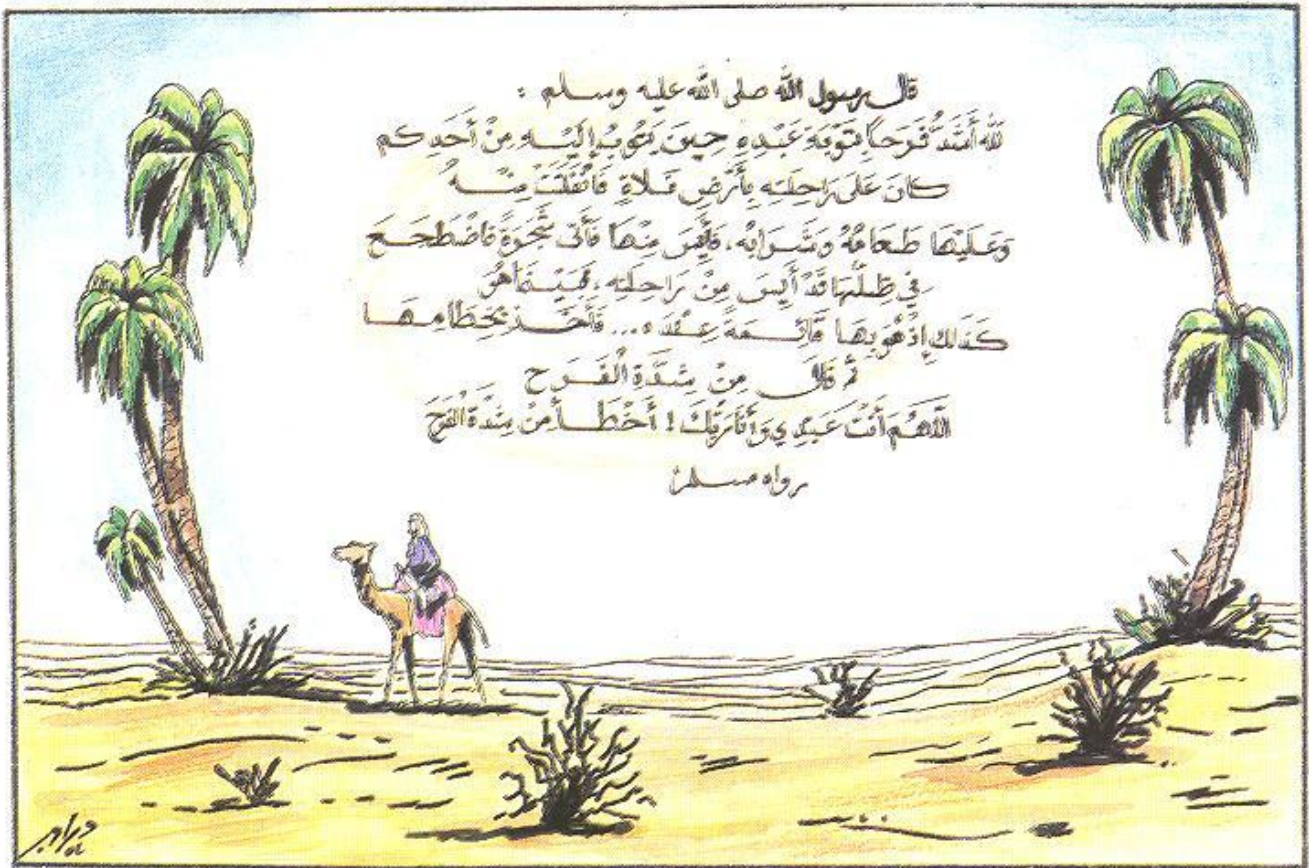 قال رسول الله صلى الله عليه وسلم :
لله أشد فرحا بتوبة عبده حين يتوب إليه من أحدكم
كان على راحلته بأرض فلاة فانفلتت منه
وعليها طعامه وشرابه، فأيس منها فأتى شجرة فاضطجع
في ظلها قد أيس من راحلته، فبينما هو
كذلك إذ هو بها قائمة عنده... فأخذ بخطامها
ثم قال من شدة الفرح
اللهم أنت عبدي وأنا ربك! أخطأ من شدة الفرح
رواه مسلم